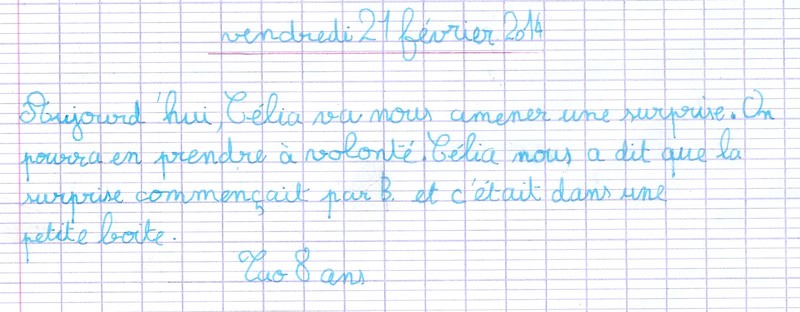 vendredi 21 février 2014
Aujourd'hui, Célia va nous amener une surprise. On
pourra en prendre à volonté. Célia nous a dit que la
surprise commençait par B. et c'était dans une
petite boite.
8 ans